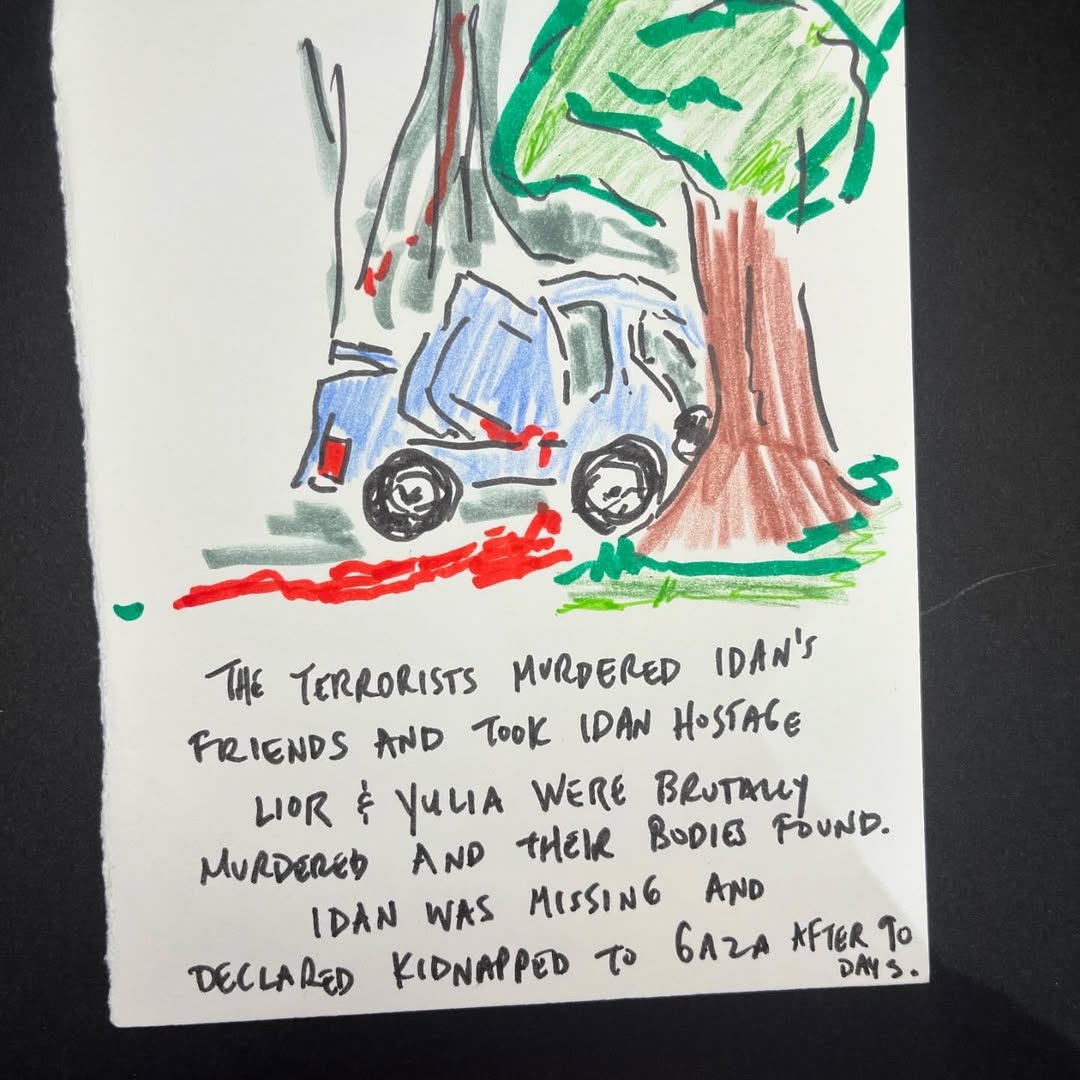 THE TERRORISTS MURDERED IDAN'S
FRIENDS AND TOOK IDAN HOSTAGE
LIOR & YULIA WERE BRUTALLY
MURDERED AND THEIR BODIES FOUND.
IDAN WAS MISSING AND
DECLARED KIDNAPPED TO GAZA AFTER 90
DAYS.